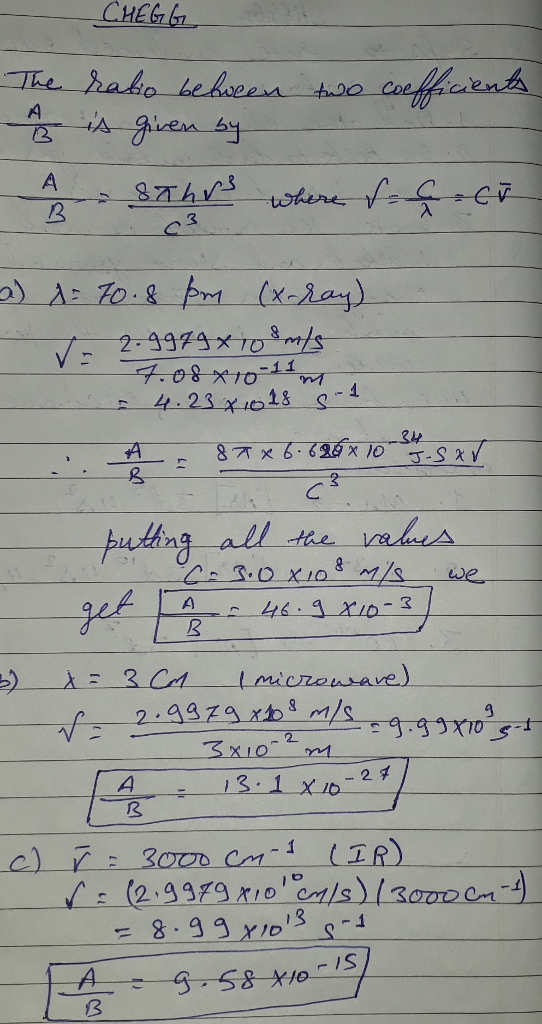 CHEGG
The ratio between two coefficients
A/B is given by
A/B = 8πhν³/C³ where ν = C/λ = Cν̄
a) λ = 70.8 pm (x-ray)
ν = 2.9979 × 10⁸ m/s / 7.08 × 10⁻¹¹ m
= 4.23 × 10¹⁸ s⁻¹
∴ A/B = 8π × 6.626 × 10⁻³⁴ J-S × ν / C³
putting all the values
C = 3.0 × 10⁸ m/s we
get A/B = 46.9 × 10⁻³
b) λ = 3 cm (microwave)
ν = 2.9979 × 10⁸ m/s / 3 × 10⁻² m = 9.99 × 10⁹ s⁻¹
A/B = 13.1 × 10⁻²⁷
c) ν̄ = 3000 cm⁻¹ (IR)
ν = (2.9979 × 10¹⁰ cm/s) (3000 cm⁻¹)
= 8.99 × 10¹³ s⁻¹
A/B = 9.58 × 10⁻¹⁵